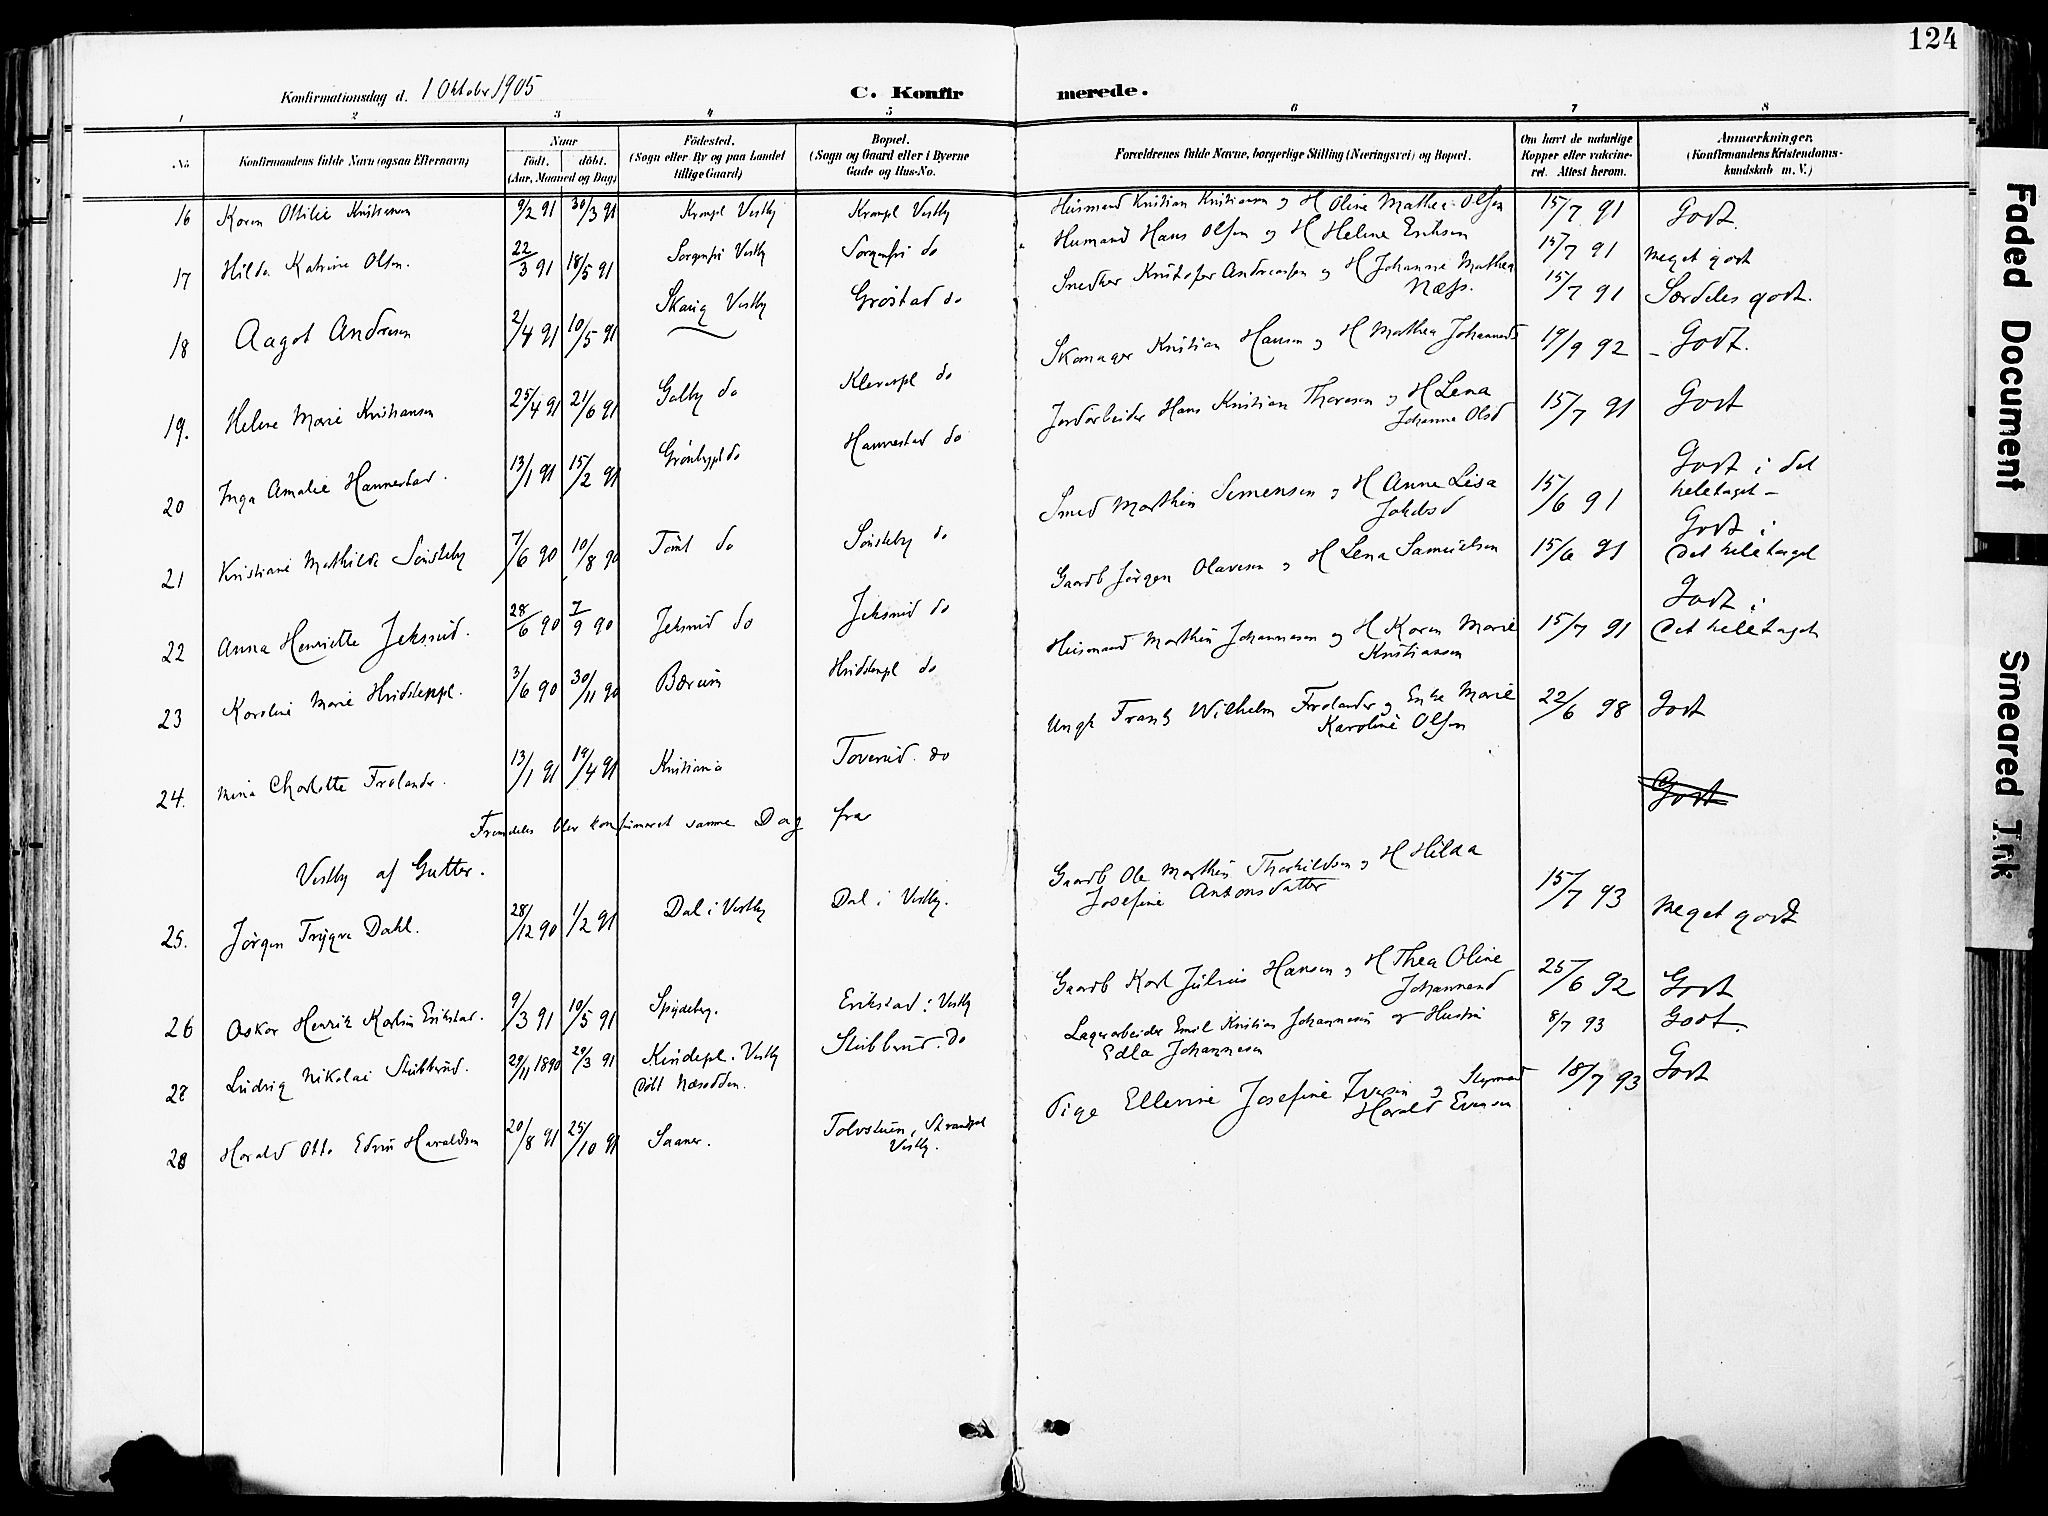 124
Konfirmationsdag d. 1 Oktober 1905
C. Konfirmerede.
1 2 3 4 5 6 7 8
No.
Konfirmandens fulde Navn (ogsaa Efternavn)
Naar
Födt. döbt.
(Aar, Maaned og Dag)
Födested.
(Sogn eller By og paa Landet
tillige Gaard)
Bopæl.
(Sogn og Gaard eller i Byerne
Gade og Hus-No.
Forældrenes fulde Navne, borgerlige Stilling (Næringsvei) og Bopæl.
Om havt de naturlige
Kopper eller vakcine-
ret. Attest herom.
Anmærkninger.
(Konfirmandens Kristendoms-
kundskab m. V.)
16 Karen Ottilie Kristiansen 9/2 91 30/3 91 Krompl Vestby Krompl Vestby Husmand Kristian Kristiansen og H Oline Mathea Olsen 15/7 91 Godt.
17 Hilda Katrine Olsen. 22/3 91 18/5 91 Sorgenfri Vestby Sorgenfri do Husmand Hans Olsen og H Helene Eriksen 15/7 91 Meget godt
18 Aagot Andresen 2/4 91 10/5 91 Skaug Vestby Gröstad do Snedker Kristofer Andreassen og H Johanne Mathea
Næss. 15/7 91 Særdeles godt.
19. Helene Marie Kristiansen 25/4 91 21/6 91 Galby do Kleverpl do Skomager Kristian Hansen og H Mathea Johannesd 19/9 92 - Godt.
20 Inga Amalie Hannestad. 13/1 91 15/2 91 Grönbypl do Hannestad do Jordarbeider Hans Kristian Thoresen og H Lena
Johanne Olsd 15/7 91 Godt
21 Kristiane Mathilde Sönsteby 7/6 90 10/8 90 Tömt do Sönsteby do Smed Marthin Simensen og H Anne Lisa
Jakobsd 15/6 91 Godt i det
heletaget -
22 Anna Henriette Jeksrud. 28/6 90 7/9 90 Jeksrud do Jeksrud do Gaardb Jörgen Olavesen og H Lena Samuelsen 15/6 91 Godt i
det heletaget
23 Karoline Marie Hvidstenpl. 3/6 90 30/11 90 Bærum Hvidstenpl do Husmand Marthin Johannesen og H Karen Marie
Kristiansen 15/7 91 Godt i
det heletaget
24. Mina Charlotte Frolander. 13/1 91 19/4 91 Kristiania Toverud. do Ungk Frants Wilhelm Frolander og Enke Marie
Karoline Olsen 22/6 98 Godt
Godt
Fremdeles blev konfirmeret samme Dag fra
Vestby af Gutter.
25. Jörgen Trygve Dahl. 28/12 90 1/2 91 Dal i Vestby Dal i Vestby. Gaardb Ole Marthin Thorkildsen og H Hilda
Josefine Antonsdatter 15/7 93 Meget godt
26 Oskar Henrik Karlsen Erikstad. 9/3 91 10/5 91 Spydeberg. Erikstad i Vestby Gaardb Karl Julius Hansen og H Thea Oline
Johannesd 25/6 92 Godt
27 Ludvig Nikolai Stubberud. 29/11 1890 29/3 91 Kindepl. Vestby
döbt Næsodden. Stubberud. do Lagerarbeider Emil Kristian Johannesen og Hustru
Edla Johannesen 8/7 93 Godt.
28 Harald Otto Edvin Haraldsen 20/8 91 25/10 91 Saaner. Tolvstuen, Strandpl
Vestby. Pige Ellevine Josefine Iversen og Styrmand
Harald Evensen 18/7 93 Godt
Faded Document
Smeared Ink